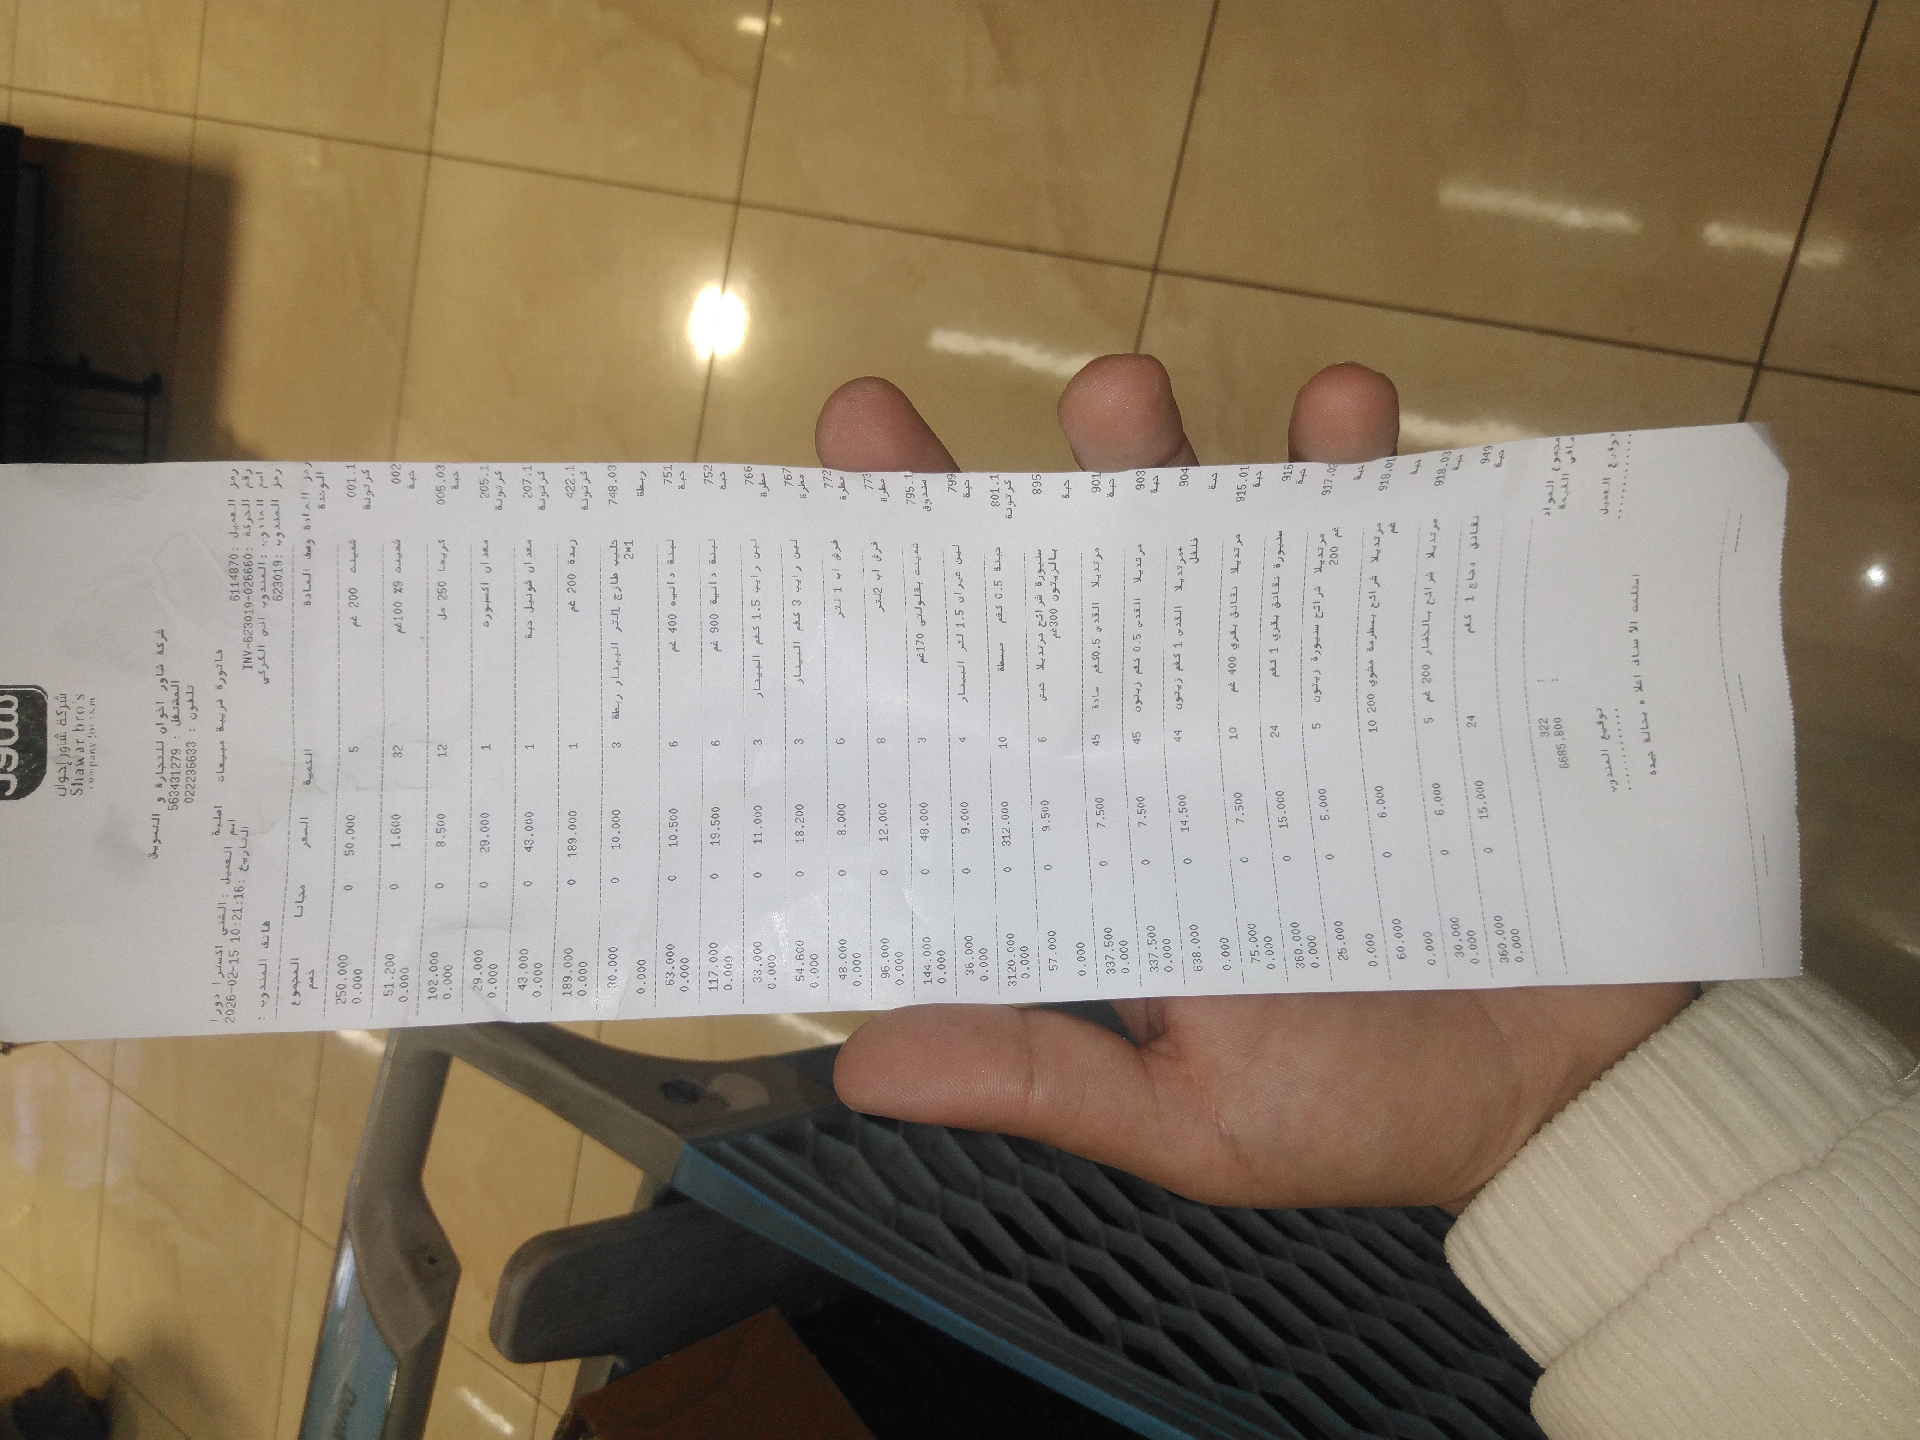 شركة شورإخوان
Shawar bro's
company for t&m
شركة شاور اخوان للتجارة و التسويق
المشتغل : 563431279
تلفون : 022236633
فاتورة ضريبية مبيعات اصلية
رمز العميل: 6114870 اسم العميل :الشني اكسترا دورا
رقم الحركة :INV-623019-026660 التاريخ :2026-02-15 10:21:16
اسم المندوب : المندوب انس الكركي
رمز المندوب :623019 هاتف المندوب :
رمز المادة وصف المادة الكمية السعر مجانا المجموع
الوحدة خصم
001.1 شمينت 200 غم 5 50.000 0 250.000
كرتونة 0.000
002 شمينت 9% 100غم 32 1.600 0 51.200
حبة 0.000
005.03 كريما 250 مل 12 8.500 0 102.000
حبة 0.000
205.1 معدان اكسبورت 1 29.000 0 29.000
كرتونة 0.000
207.1 معدان فوتبل حبة 1 43.000 0 43.000
كرتونة 0.000
422.1 زبدة 200 غم 1 189.000 0 189.000
كرتونة 0.000
748.03 حليب طازج 1لتر البينار ربطة 2*1 3 10.000 0 30.000
ربطة 0.000
751 لبنة دانبيه 400 غم 6 10.500 0 63.000
حبة 0.000
752 لبنة دانبية 900 غم 6 19.500 0 117.000
حبة 0.000
766 لبن رايب 1.5 كغم البينار 3 11.000 0 33.000
مطرة 0.000
767 لبن رايب 3 كغم البينار 3 18.200 0 54.600
مطرة 0.000
772 فرش اب 1 لتر 6 8.000 0 48.000
مطرة 0.000
773 فرش اب 2لتر 8 12.000 0 96.000
مطرة 0.000
795.1 شمينت بقلولتي 170غم 3 48.000 0 144.000
صندوق 0.000
799 لبن عيران 1.5 لتر البينار 4 9.000 0 36.000
حبة 0.000
801.1 جبنة 0.5 كغم مبسطة 10 312.000 0 3120.000
كرتونة 0.000
895 سنيورة شرائح مرتديلا حبش بالزيتون 300غم 6 9.500 0 57.000
حبة 0.000
901 مرتديلا القدس 0.5كغم سادة 45 7.500 0 337.500
حبة 0.000
903 مرتديلا القدس 0.5 كغم زيتون 45 7.500 0 337.500
حبة 0.000
904 مرتديلا القدس 1 كغم زيتون+فلفل 44 14.500 0 638.000
حبة 0.000
915.01 مرتديلا نقانق بقري 400 غم 10 7.500 0 75.000
حبة 0.000
916 سنيورة نقانق بقري 1 كغم 24 15.000 0 360.000
حبة 0.000
917.02 مرتديلا شرائح سنيورة زيتون 200 غم 5 5.000 0 25.000
حبة 0.000
918.01 مرتديلا شرائح بسطرمة مشوي 200 غم 10 6.000 0 60.000
حبة 0.000
918.03 مرتديلا شرائح بالخضار 200 غم 5 6.000 0 30.000
حبة 0.000
949 نقانق دجاج 1 كغم 24 15.000 0 360.000
حبة 0.000
مجموع المواد : 322
صافي القيمة : 6685.800
توقيع العميل توقيع المندوب
استلمت الاصناف اعلاه بحالة جيدة